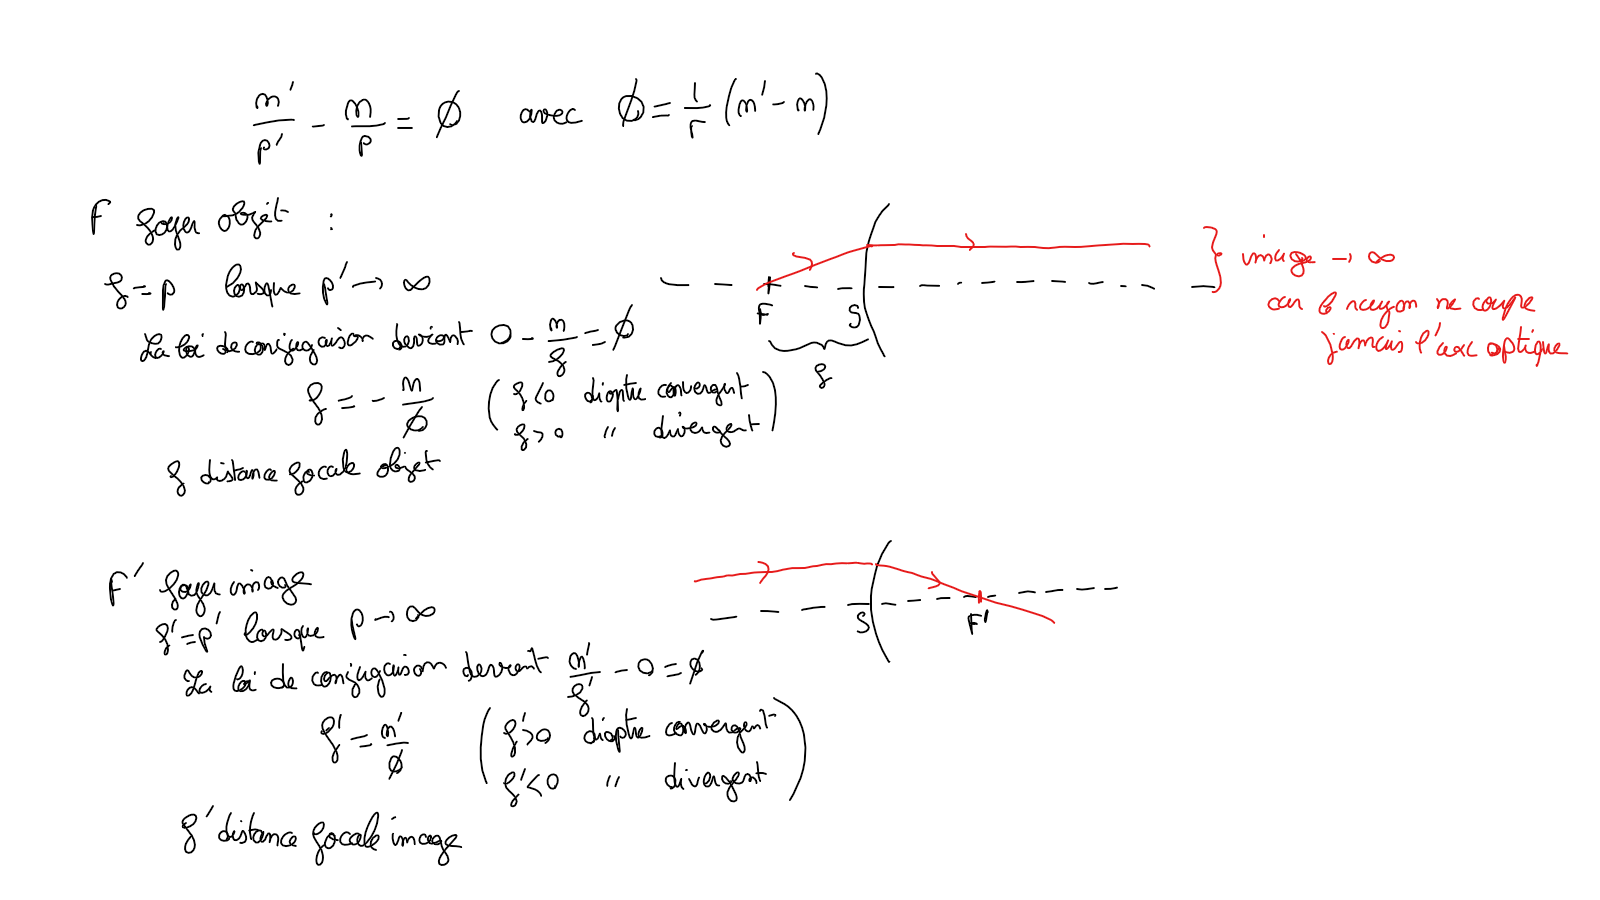 n'/p' - n/p = ϕ avec ϕ = 1/r (n' - n)
F foyer objet :
f = p lorsque p' → ∞
La loi de conjugaison devient 0 - n/f = ϕ
f = - n/ϕ ( f < 0 dioptre convergent
f > 0 " divergent )
f distance focale objet
F S
f
} image → ∞
car le rayon ne coupe
jamais l'axe optique
F' foyer image
f' = p' lorsque p → ∞
La loi de conjugaison devient n'/f' - 0 = ϕ
f' = n'/ϕ ( f' > 0 dioptre convergent
f' < 0 " divergent )
f' distance focale image
S F'